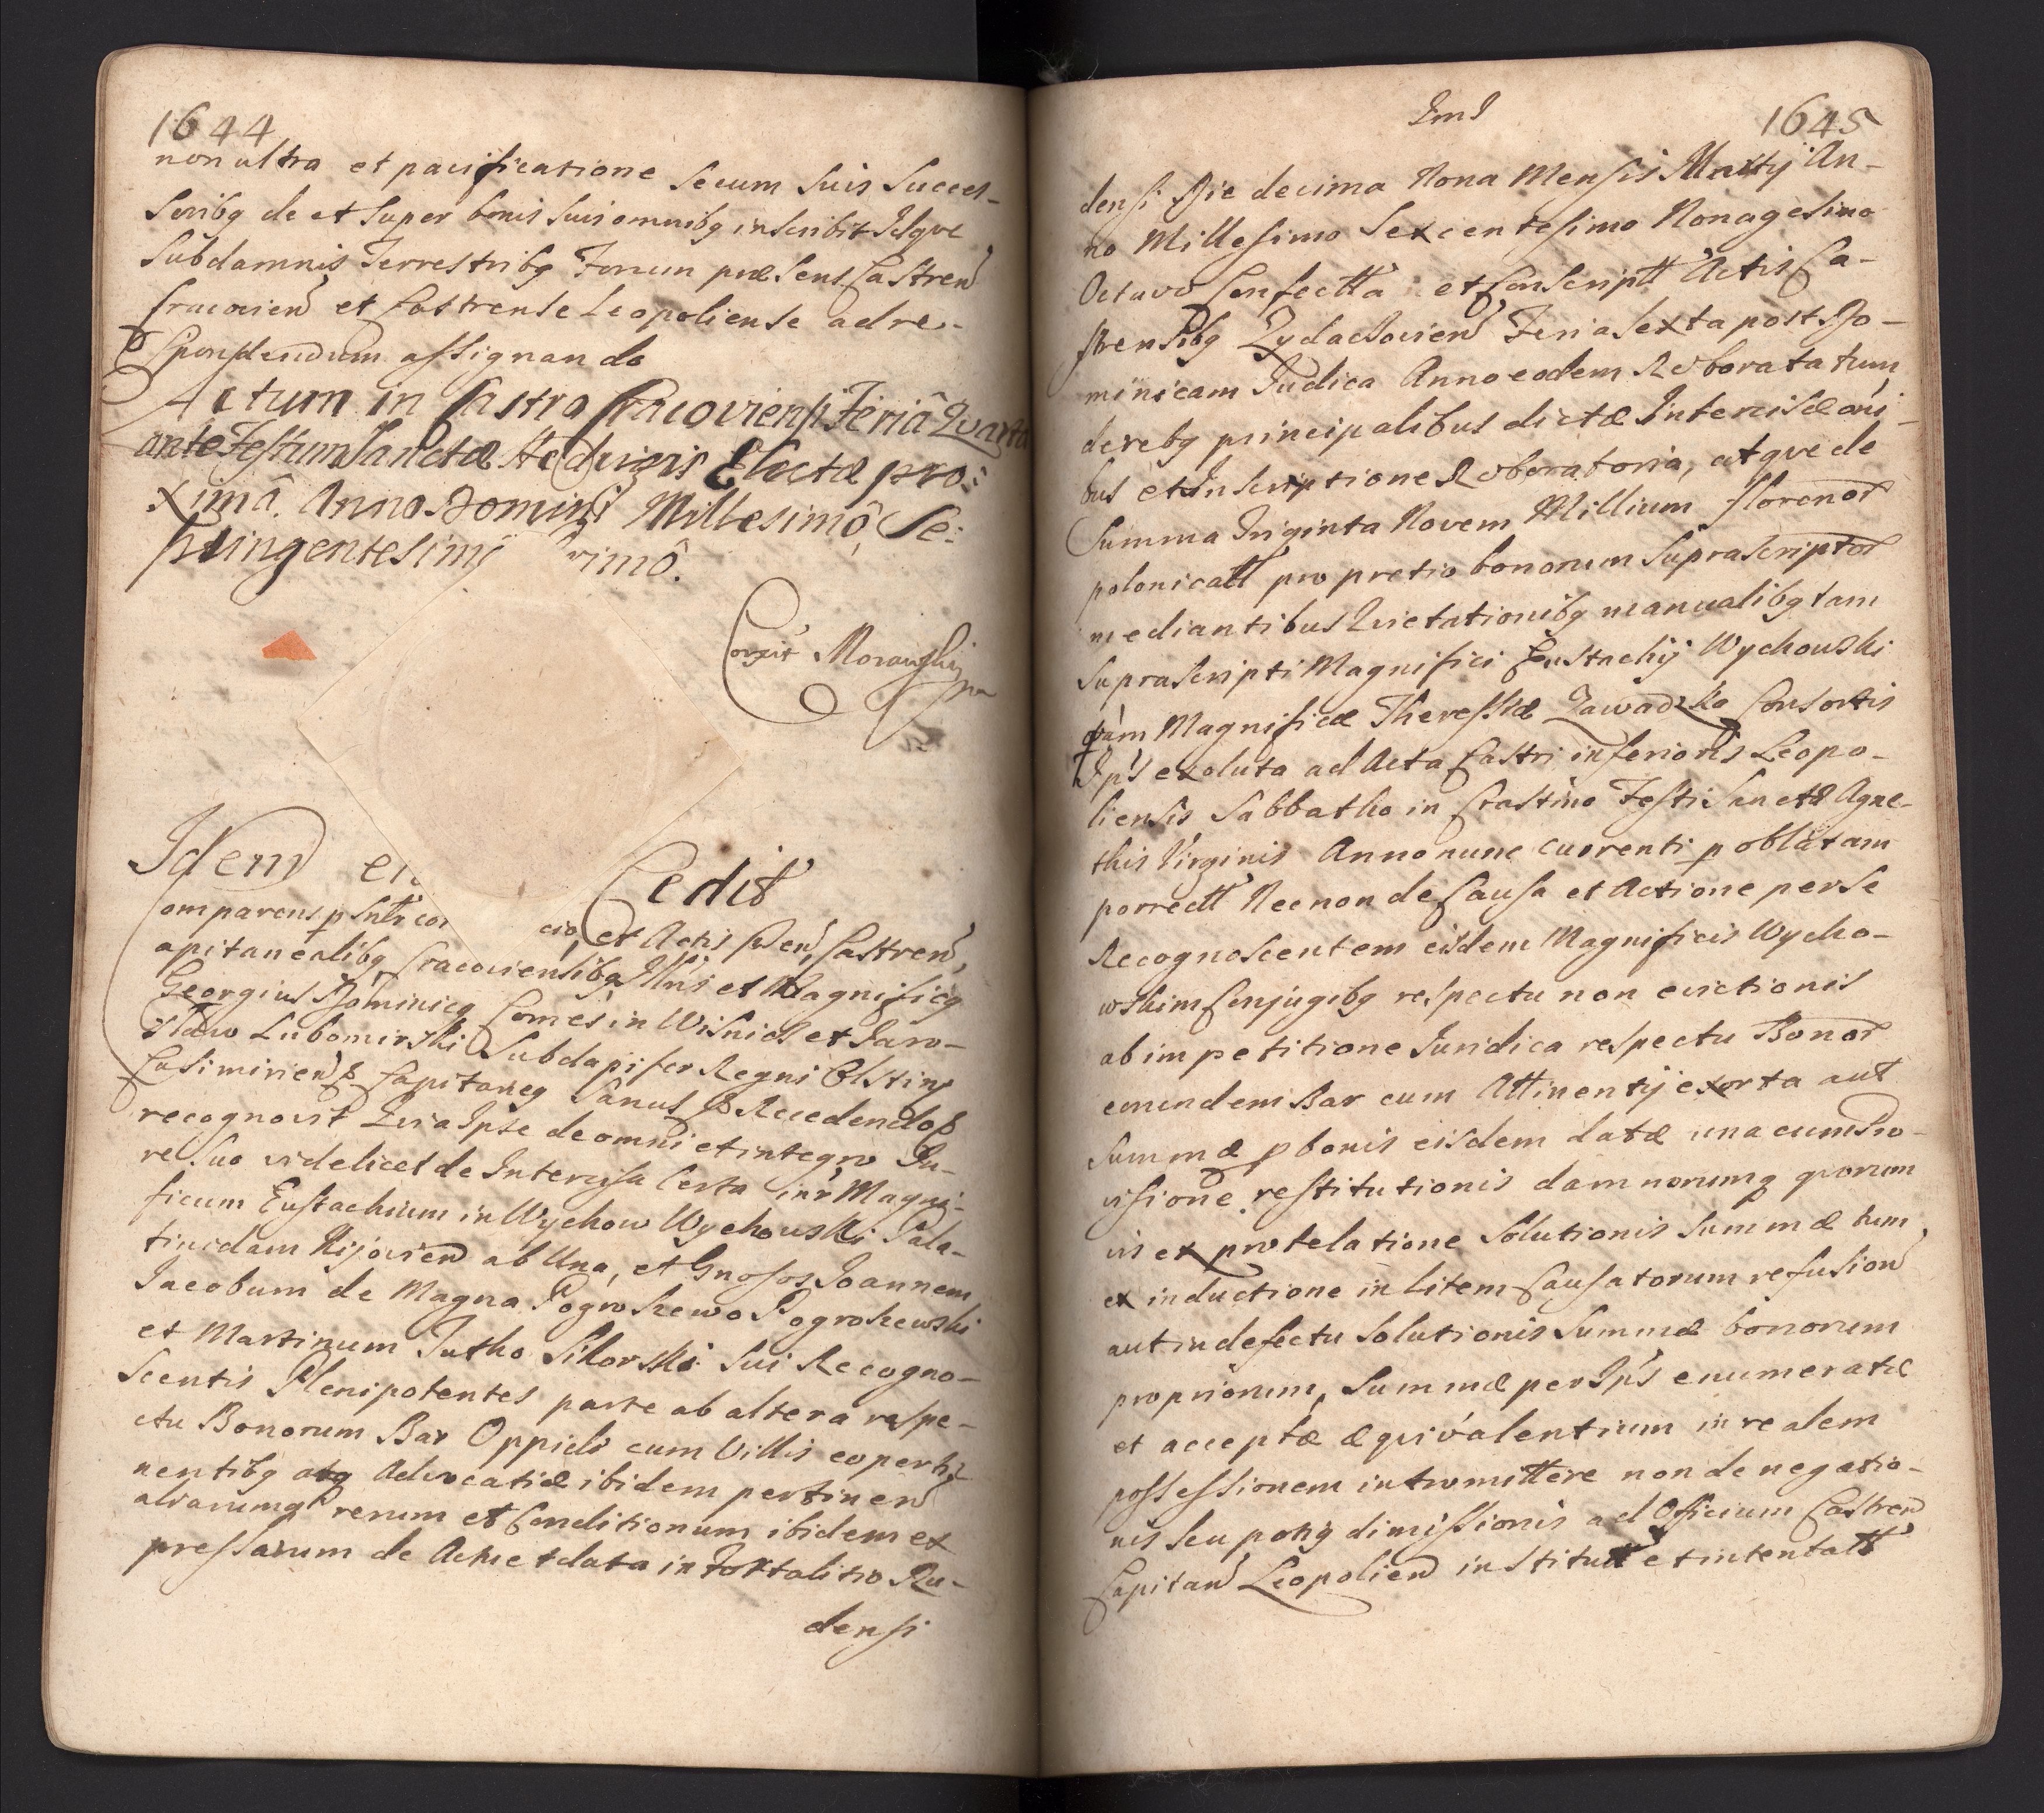 1644
non ultra et pacificatione Secum Suis Succes-
Soribq de et Super bonis Suis omnibq inscribit Idqve
Subdamnis Terrestribq Forum præsens Castren
Cracovien et Castrense Leopoliense ad re-
Spondendum assignando
Actum in Castro Cracoviensi Feriâ Qvarta
ante Festum Sanctæ Hedvigis Electæ pro:
ximâ. Anno Domini Millesimô, Se:
ptingentesimô
Corexit
Idem Cedit
Comparens
et Actis Castren,
apitanealibq Cracoviensibq Illris et Magnificq
Georgius Dominicq Comes in Wisnicz et Jaro-
slaw Lubomirski Subdapifer Regni Olstinen
Casimirien Capitaneq Sanus Recedendo
recognovit Qvia Ipse de omni et integro Ju-
re Suo videlicet de Intercisa Certa intr Magni-
ficum Eustachium in Wychow Wychowski Pala-
tinidam Kijovien ab Una, et Gnosos Joannem
Jacobum de Magna Pogroszewo Pogroszewski
et Martinum Jutho Sikorski Sui Recogno-
Scentis Plenipotentes parte ab altera respe-
ctu Bonorum Bar Oppidi cum Villis eo perti-
nentibq atq Advocatiæ ibidem pertinen
aliarumq rerum et Conditionum ibidem ex
pressarum de Actu et data in Fortalitio Ru-
densi
1645
densi Die decima Nona Mensis Martij An-
no Millesimo Sexcentesimo Nonagesimo
Octavo Confectta et Conscriptt Actis Ca-
strensibq Zydaczovien Feria Sexta post Do-
minicam Judica Anno eodem Roborata tum
de rebq principalibus dictæ Intercisæ oni-
bus et Inscriptione Roboratoria, atqve de
Summa Triginta Novem Millium florenor
polonicatt pro pretio bonorum Suprascriptor
mediantibus Qvietationibq manualibq tam
Suprascripti Magnifici Eustachij Wychowski
qvàm Magnificæ Theressiæ Zawadzka Consortis
Ips exoluta ad Acta Castri inferioris Leopo-
liensis Sabbatho in Crastino Festi Sanctæ Agne-
this Virginis Anno nunc currenti p oblatam
porrectt Necnon de Causa et Actione per Se
Recognoscentem eisdem Magnificis Wycho-
wskim Conjugibq respectu non evictionis
ab impetitione Juridica respectu Bonor
eorundem Bar cum Attinentij exorta aut
Summæ p bonis eisdem datæ una cum Pro-
visione restitutionis damnorumq qvorum
vis ex protelatione Solutionis Summæ tum
ex inductione in Litem Causatorum refusion
aut in defectu Solutionis Summæ bonorum
propriorum, Summæ per Ips enumeratæ
et acceptæ æqvivalentium in realem
possessionem intromittere non denegatio-
nis Seu potiq dimissionis ad Officium Castren
Capitan Leopolien institutt et intentatt